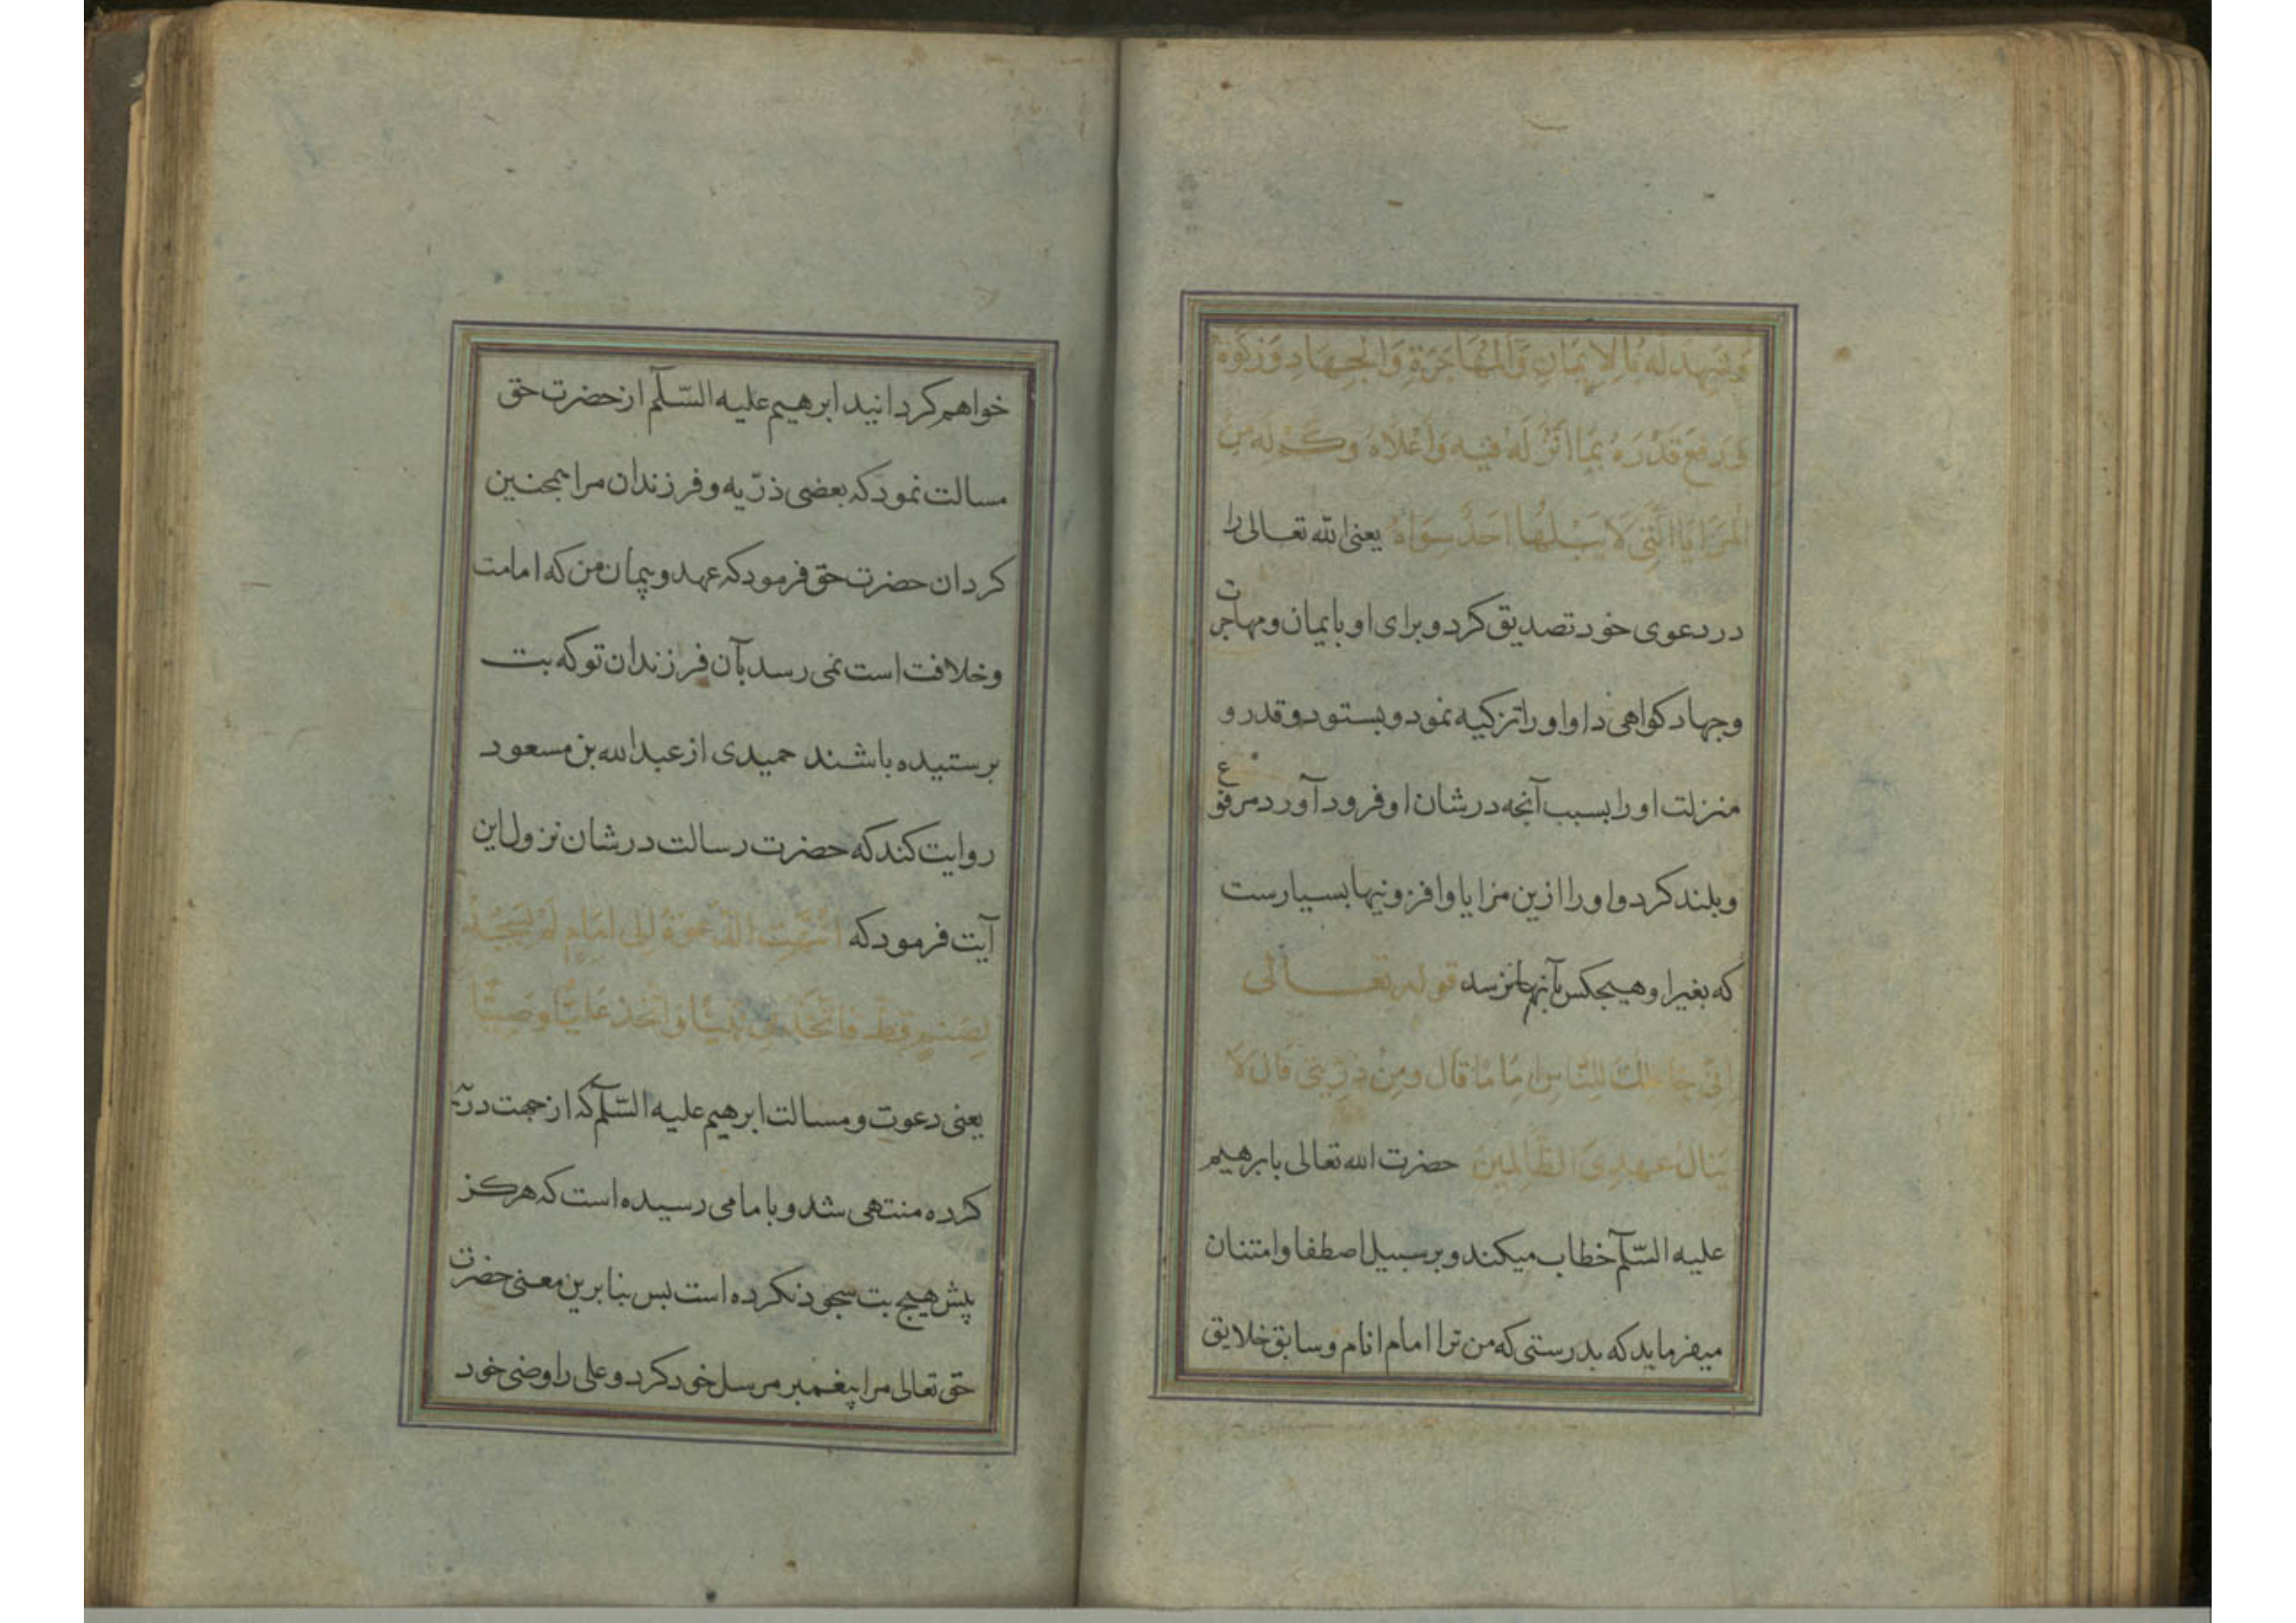 وَشَهِدَ لَهُ بِالاِيمَانِ وَالْمُهَاجَرَةِ وَالْجِهَادِ وَزَكَوة
وَرَفَعَ قَدْرَهُ بِمَا اَنْزَلَهُ فِيهِ وَاَعْلَاهُ وَكَمْ لَهُ مِنَ
الْمَزَايَا الَّتِى لَا يَبْلُغُهَا اَحَدٌ سِوَاهُ یعنی الله تعالی را
در دعوی خود تصدیق کرد و برای او بایمان و مهاجرت
و جهاد کواهی دا و او را تزکیه نمود و بستود و قدر و
منزلت او را بسبب آنجه در شان او فرود آورد مرفوع
و بلند کرد و او را ازین مزایا و افزونیها بسیارست
که بغیر او هیجکس بآنها نرسد قوله تعالی
اِنّی جَاعِلُكَ لِلنَّاسِ اِمَامًا قَالَ وَمِنْ ذُرِّیَّتی قَالَ لَا
یَنَالُ عَهْدِیَ الظَّالِمِینَ حضرت الله تعالی بابرهیم
علیه السّلم خطاب میکند و بر سبیل اصطفا و امتنان
میفرماید که بدرستی که من ترا امام انام و سابق خلایق
خواهم کردانید ابرهیم علیه السّلم از حضرت حق
مسالت نمود که بعضی ذرّیه و فرزندان مرا همجنین
کردان حضرت حق فرمود که عهد و پیمان من که امامت
و خلافت است نمی رسد بآن فرزندان تو که بت
برستیده باشند حمیدی از عبدالله بن مسعود
روایت کند که حضرت رسالت در شان نزول این
آیت فرمود که اِنْتَهَتِ الدَّعْوَةُ اِلی اِمَامٍ لَمْ یَسْجُدْ
لِصَنَمٍ قَطُّ فَاتَّخَذَنِی نَبِیًّا وَاتَّخَذَ عَلِیًّا وَصِیًّا
یعنی دعوت و مسالت ابرهیم علیه السّلم که از جهت ذرّیه
کرده منتهی شد و بامامی رسیده است که هرکز
پیش هیج بت سجود نکرده است بس بنا برین معنی حضرت
حق تعالی مرا پیغمبر مرسل خود کرد و علی را وصی خود